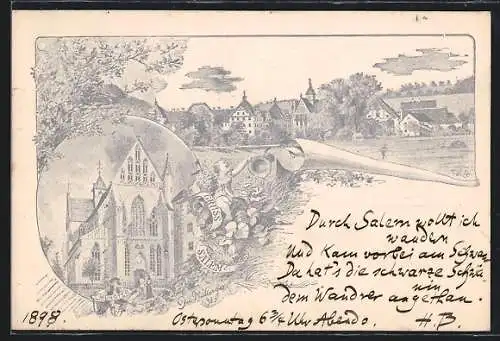 GRUSS
SALEM
Durch Salem wollt ich
wandern
Und kam vorbei am Schwan
Da hat's die schwarze Schwä
nin
dem Wandrer angethan.
1898.
Ostersonntag 6 3/4 Uhr Abends.
H.B.